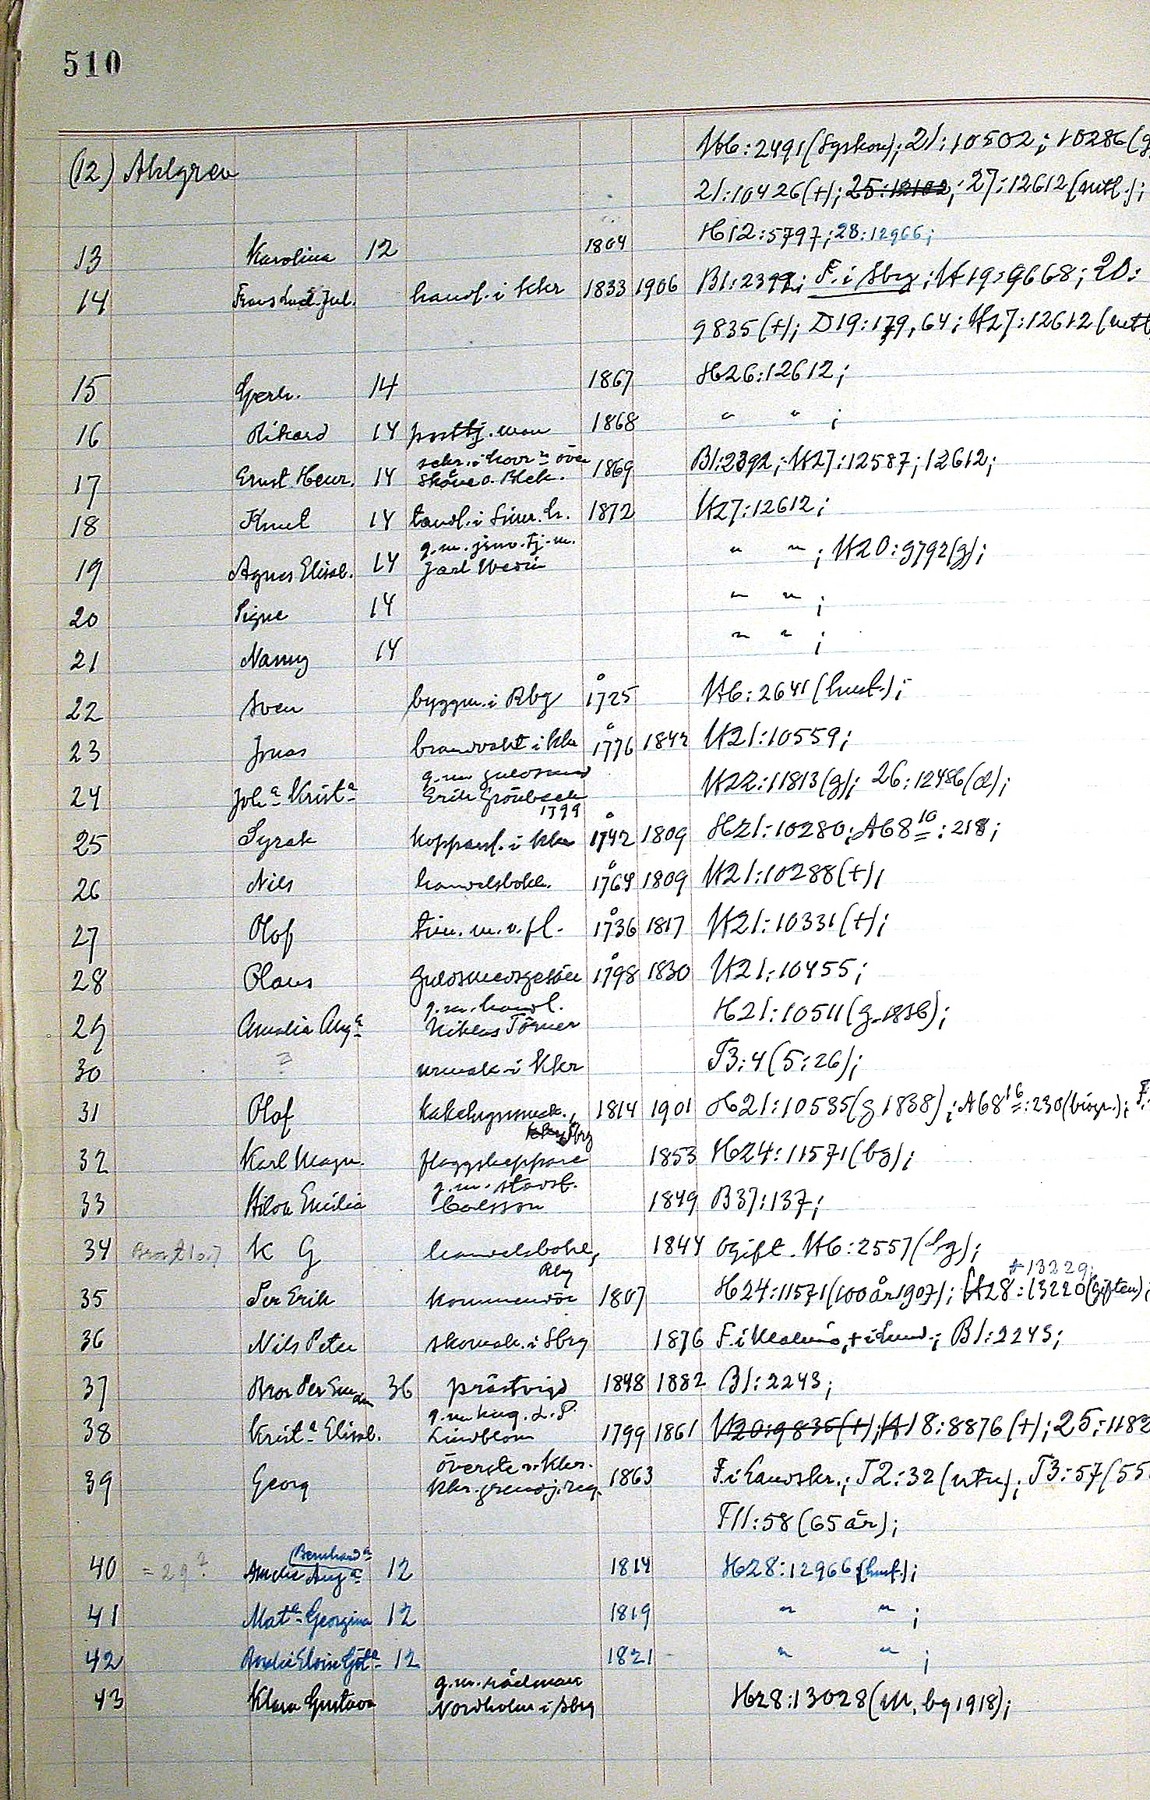 510
(12) Ahlgren H6:2491 (Syskon); 21:10502; 10286 (g
21:10426 (+); 25:12102; 27:12612 (antl.);
13 Karolina 12 1804 H12:5797; 28:12966;
14 Frans Lud. Jul. handl. i Kkr 1833 1906 B1:2392; F. i Sbrg; H19:9668; 20:
9835 (+); D19:179, 64; H27:12612 (antl
15 Gerh. 14 1867 H26:12612;
16 Rikard 14 posttj.man 1868 " " ;
17 Ernst Henr. 14 sekr. i hovr:n över Skåne o. Blek. 1869 B1:2392; H27:12587; 12612;
18 Knut 14 tandl. i Sim.h. 1872 H27:12612;
19 Agnes Elisab. 14 g.m. jrnv.tj.m. Jarl Wesin " " ; H20:9792 (g);
20 Signe 14 " " ;
21 Nanny 14 " " ;
22 Sven byggm. i Rbg 1725 H6:2641 (hust.);
23 Jonas brandvakt i Kkr 1776 1842 H21:10559;
24 Joh:a Krist:a g.m. guldsmed Erik Grönbeck 1799 H22:11813 (g); 26:12486 (d);
25 Syrak koppard. i Kkr 1742 1809 H21:10280; A68 10:218;
26 Nils handelsbokh. 1764 1809 H21:10288 (+);
27 Olof tim.m.v.fl. 1736 1817 H21:10331 (+);
28 Olaus guldsmedsgesäll 1798 1830 H21:10455;
29 Amalia Aug:a g.m. handl. Niklas Törner H21:10511 (g. 1836);
30 ? urmak. i Kkr T3:4 (5:26);
31 Olof kakelugnsmak., Sbrg 1814 1901 H21:10535 (g 1838); A68 16:230 (biogr.); F.
32 Karl Magn. flaggskeppare 1853 H24:11571 (bg);
33 Hilda Emilia g.m. Carlsson 1849 B37:137;
34 K G handelsbokh, Rbg 1844 Ogift. H6:2557 (bg);
+ 13229;
35 Per Erik kommendör 1807 H24:11571 (100 år 1907); H28:13220 (giften);
36 Nils Peter skomak. i Sbrg 1876 F. i Malmö, + i Lund.; B1:2243;
37 Bror Per 36 prästvigd 1848 1882 B1:2243;
38 Krist:a Elisab. g.m. Lindblom 1799 1861 H20:9836 (+); H18:8876 (+); 25:1182
39 Georg överste v. Khr. Khr. grendj.reg. 1863 F. i Landskr.; T2:32 (utn); T3:57 (55
T11:58 (65 år);
40 = 29? Amalie Bernhard:a Aug:a 12 1814 H28:12966 (hust.);
41 Mat:a Georgina 12 1819 " " ;
42 Eloise Göt:a 12 1821 " " ;
43 Klara Gustava g.m. rådman Nordholm i Sbrg H28:13028 (m, bg 1918);